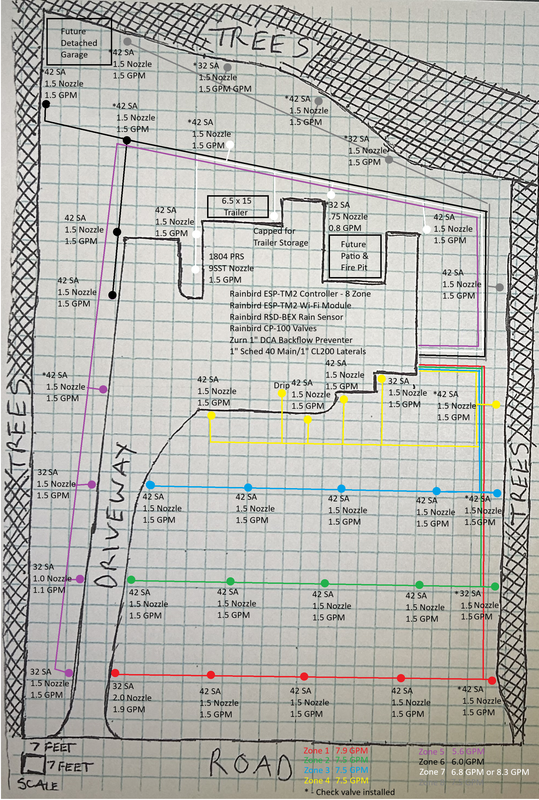 Future
Detached
Garage
TREES
*42 SA
1.5 Nozzle
1.5 GPM
*32 SA
1.5 Nozzle
1.5 GPM GPM
*42 SA
1.5 Nozzle
1.5 GPM
*42 SA
1.5 Nozzle
1.5 GPM
*42 SA
1.5 Nozzle
1.5 GPM
*42 SA
1.5 Nozzle
1.5 GPM
*32 SA
1.5 Nozzle
1.5 GPM
6.5 x 15
Trailer
*32 SA
.75 Nozzle
0.8 GPM
42 SA
1.5 Nozzle
1.5 GPM
42 SA
1.5 Nozzle
1.5 GPM
42 SA
1.5 Nozzle
1.5 GPM
Capped for
Trailer Storage
Future
Patio &
Fire Pit
1804 PRS
9SST Nozzle
1.5 GPM
42 SA
1.5 Nozzle
1.5 GPM
42 SA
1.5 Nozzle
1.5 GPM
Rainbird ESP-TM2 Controller - 8 Zone
Rainbird ESP-TM2 Wi-Fi Module
Rainbird RSD-BEX Rain Sensor
Rainbird CP-100 Valves
Zurn 1" DCA Backflow Preventer
1" Sched 40 Main/1" CL200 Laterals
*42 SA
1.5 Nozzle
1.5 GPM
42 SA
1.5 Nozzle
1.5 GPM
Drip
42 SA
1.5 Nozzle
1.5 GPM
42 SA
1.5 Nozzle
1.5 GPM
32 SA
1.5 Nozzle
1.5 GPM
*42 SA
1.5 Nozzle
1.5 GPM
TREES
TREES
DRIVEWAY
32 SA
1.5 Nozzle
1.5 GPM
42 SA
1.5 Nozzle
1.5 GPM
42 SA
1.5 Nozzle
1.5 GPM
42 SA
1.5 Nozzle
1.5 GPM
42 SA
1.5 Nozzle
1.5 GPM
*42 SA
1.5 Nozzle
1.5 GPM
32 SA
1.0 Nozzle
1.1 GPM
42 SA
1.5 Nozzle
1.5 GPM
42 SA
1.5 Nozzle
1.5 GPM
42 SA
1.5 Nozzle
1.5 GPM
42 SA
1.5 Nozzle
1.5 GPM
*32 SA
1.5 Nozzle
1.5 GPM
32 SA
1.5 Nozzle
1.5 GPM
32 SA
2.0 Nozzle
1.9 GPM
42 SA
1.5 Nozzle
1.5 GPM
42 SA
1.5 Nozzle
1.5 GPM
42 SA
1.5 Nozzle
1.5 GPM
*42 SA
1.5 Nozzle
1.5 GPM
7 FEET
7 FEET
SCALE
ROAD
Zone 1 7.9 GPM
Zone 2 7.5 GPM
Zone 3 7.5 GPM
Zone 4 7.5 GPM
* - Check valve installed
Zone 5 5.6 GPM
Zone 6 6.0 GPM
Zone 7 6.8 GPM or 8.3 GPM